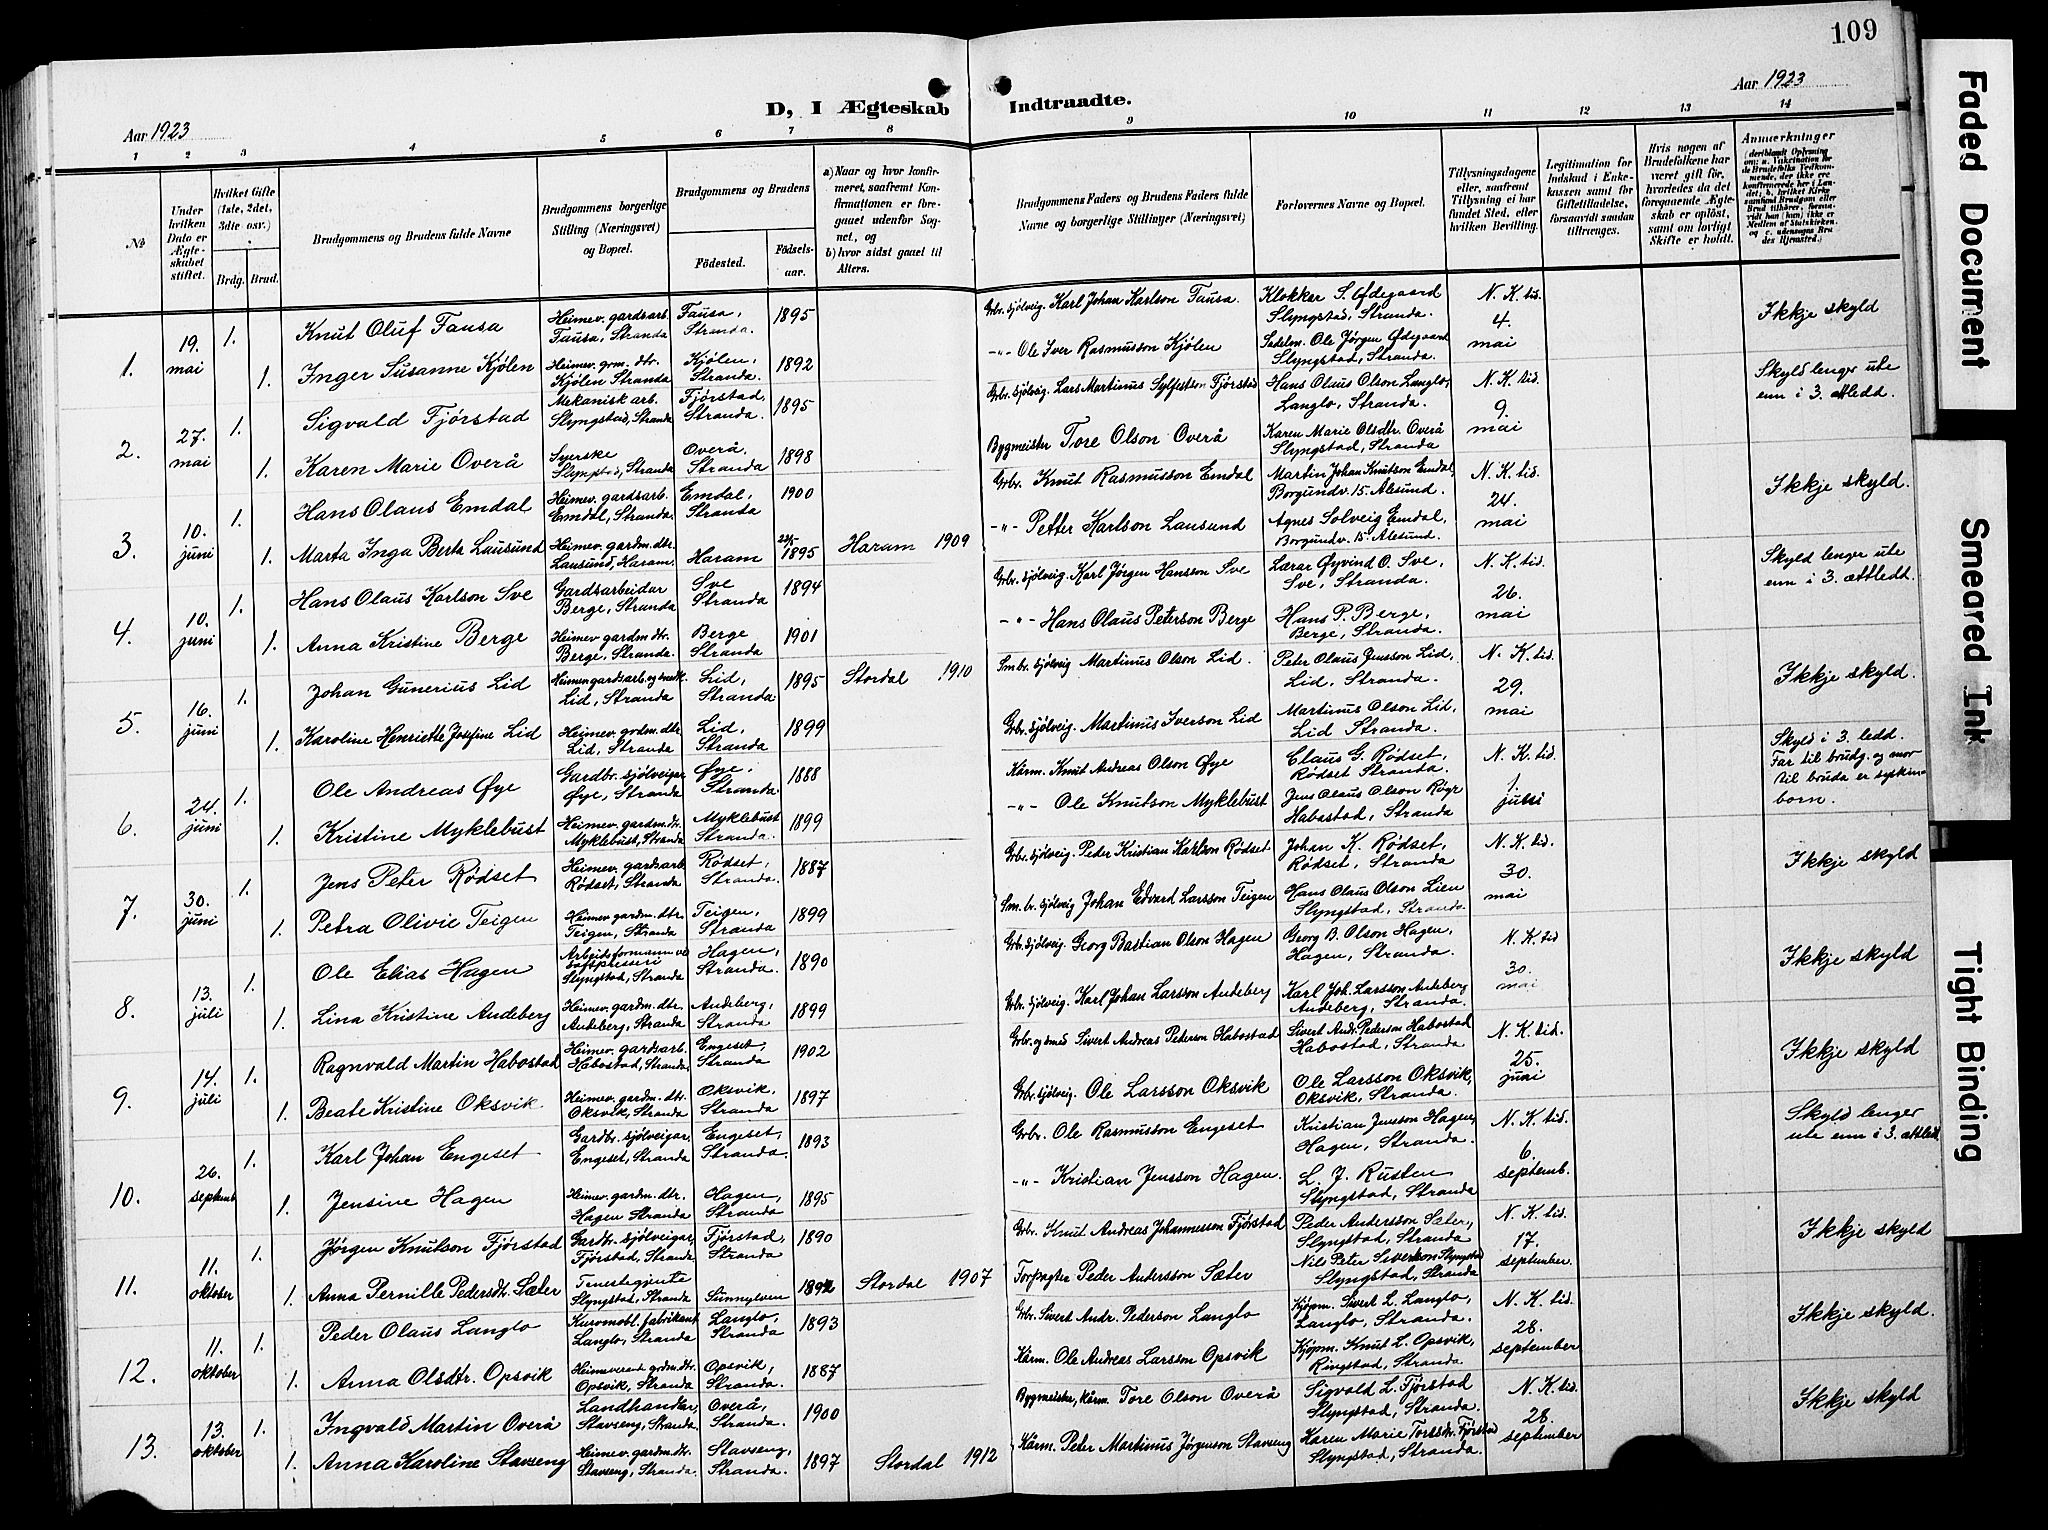 109
D, I Ægteskab Indtraadte.
Aar 1923
Aar 1923
1 2 3 4 5 6 7 8 9 10 11 12 13 14
№
Under hvilken Dato er Ægteskabet stiftet.
Hvilket Gifte (1ste, 2det, 3dte osv.)
Brdg. Brud.
Brudgommens og Brudens fulde Navne
Brudgommens borgerlige Stilling (Næringsvei) og Bopæl.
Brudgommens og Brudens
Fødested.
Fødselsaar.
a) Naar og hvor konfirmeret, saafremt Konfirmationen er foregaaet udenfor Sognet, og
b) hvor sidst gaaet til Alters.
Brudgommens Faders og Brudens Faders fulde Navne og borgerlige Stillinger (Næringsvei)
Forlovernes Navne og Bopæl.
Tillysningsdagene eller, saafremt Tillysning ei har fundet Sted, efter hvilken Bevilling.
Legitimation for Indskud i Enkekassen samt for Giftetilladelse, forsaavidt saadan tiltrænges.
Hvis nogen af Brudefolkene har været gift før, hvorledes da det foregaaende Ægteskab er opløst, samt om lovligt Skifte er holdt.
Anmerkninger
1. 19. mai 1. Knut Oluf Fausa Heimev. gardsarb. Fausa, Stranda Fausa, Stranda. 1895 Grbr. sjølveig. Karl Johan Karlson Fausa. Klokkar S. Ødegaard Slyngstad, Stranda. N. K. tid. 4. mai Ikkje skyld
1. Inger Susanne Kjølen Heimev. grm. dtr. Kjølen Stranda Kjølen, Stranda. 1892 -"- Ole Iver Rasmusson Kjølen Sadelm. Ole Jørgen Ødegaard Slyngstad, Stranda.
2. 27. mai 1. Sigvald Fjørstad Mekanisk arb. Slyngstad, Stranda Fjørstad, Stranda. 1895 Grbr. sjølveig. Lars Martinus Sylfestson Fjørstad Hans Olaus Olson Langlo, Langlo, Stranda. N. K. tid. 9. mai Skyld lenger ute enn i 3. ættledd.
1. Karen Marie Overå Syerske Slyngstad, Stranda Overå. Stranda 1898 Bygmeister Tore Olson Overå Karen Marie Olsdtr. Overå Slyngstad, Stranda
3. 10. juni 1. Hans Olaus Emdal Heimev. gardsarb. Emdal, Stranda. Emdal, Stranda 1900 Grbr. Knut Rasmusson Emdal Martin Johan Knutson Emdal, Borgundv. 15. Ålesund. N. K. tid. 24. mai Ikkje skyld.
1. Marta Inga Berta Lausund Heimev. gardm. dtr. Lausund, Haram. Haram 1895 Haram 1909 -"- Petter Karlson Lausund Agnes Solveig Emdal, Borgundv. 15. Ålesund.
4. 10. juni 1. Hans Olaus Karlson Sve Gardsarbeidar Berge, Stranda Sve Stranda 1894 Grbr. sjølveig. Karl Jørgen Hansson Sve Lærar Øyvind O. Sve, Sve, Stranda. N. K. tid. 26. mai Skyld lenger ute enn i 3. ættledd.
1. Anna Kristine Berge Heimev. gardm. dtr. Berge, Stranda. Berge Stranda 1901 -"- Hans Olaus Peterson Berge Hans P. Berge, Berge, Stranda.
5. 16. juni 1. Johan Gunerius Lid Lid, Stranda Lid, Stranda. 1895 Stordal 1910 Smbr. sjølveig Martinus Olson Lid. Peter Olaus Jensson Lid, Lid, Stranda. N. K. tid. 29. mai Ikkje skyld.
1. Karoline Henriette Josefine Lid Heimev. grdm. dtr. Lid, Stranda Lid, Stranda 1899 Grbr. sjølveig. Martinus Iverson Lid Martinus Olson Lid, Lid Stranda.
6. 24. juni 1. Ole Andreas Øye Gardbr. sjølveigar, Øye, Stranda Øye, Stranda 1888 Kårm. Knut Andreas Olson Øye Claus G. Rødset, Rødset Stranda. N. K. tid. 1. juni Skyld i 3. ledd. Far til brudg. og mor til bruda er syskinborn.
1. Kristine Myklebust Heimev. gardm. dtr. Myklebust, Stranda Myklebust Stranda. 1899 -"- Ole Knutson Myklebust Jens Olaus Olson Røyr Habostad, Stranda
7. 30. juni 1. Jens Peter Rødset Heimev. gardsarb Rødset, Stranda Rødset, Stranda. 1887 Grbr. sjølveig. Peder Kristian Karlson Rødset Johan K. Rødset, Rødset, Stranda N. K. tid. 30. mai Ikkje skyld
1. Petra Olivie Teigen Heimev. gardm. dtr. Teigen, Stranda Teigen, Stranda 1899 Sm. br. sjølveig Johan Edvard Larsson Teigen Hans Olaus Olson Lien Slyngstad, Stranda
8. 13. juli 1. Ole Elias Hagen Arbeidsformann ved saftpresseri Slyngstad, Stranda Hagen, Stranda. 1890 Grbr. sjølveig. Georg Bastian Olson Hagen Georg B. Olson Hagen, Hagen, Stranda. N. K. tid 30. mai Ikkje skyld
1. Lina Kristine Andeberg Heimev. gardm. dtr. Andeberg, Stranda Andeberg, Stranda 1899 Grbr. sjølveig. Karl Johan Larsson Andeberg Karl Joh. Larsson Andeberg Andeberg, Stranda.
9. 14. juli 1. Ragnvald Martin Habostad Heimev. gardsarb. Habostad, Stranda, Engeset, Stranda 1902 Grbr. og smed Sivert Andreas Peterson Habostad Sivert Andr. Pederson Habostad Habostad, Stranda N. K. tid. 25. juni Ikkje skyld
1. Beate Kristine Oksvik. Heimev. gardm. dtr. Oksvik, Stranda Oksvik, Stranda 1897 Grbr. sjølveig. Ole Larsson Oksvik Ole Larsson Oksvik, Oksvik, Stranda.
10. 26. septemb. 1. Karl Johan Engeset Gardbr. sjølveigar, Engeset, Stranda Engeset, Stranda. 1893 Grbr. Ole Rasmusson Engeset Kristian Jensson Hagen, Hagen, Stranda. N. K. tid. 6. septemb. Skyld lenger ute enn i 3. ættledd
1. Jensine Hagen Heimev. gardm. dtr. Hagen Stranda Hagen, Stranda 1895 -"- Kristian Jensson Hagen. L. J. Rusten Slyngstad, Stranda
11. 11. oktober 1. Jørgen Knutson Fjørstad Gardbr. sjølveigar, Fjørstad, Stranda Fjørstad, Stranda 1890 Grbr. Knut Andreas Johannesson Fjørstad Peder Andersson Sæter, Slyngstad, Stranda N. K. tid. 17. september. Ikkje skyld
1. Anna Pernille Pedersdtr. Sæter Tenestegjente Slyngstad, Stranda Sunnylven 1892 Stordal 1907 Forpagter Peder Andersson Sæter Nils Peter Sivertson Slyngstad Slyngstad, Stranda
12. 11. oktober 1. Peder Olaus Langlo Kuromøbl. fabrikant Langlo, Stranda Langlo, Stranda 1893 Grbr. Sivert Andr. Pederson Langlo Kjøpm. Sivert L. Langlo, Langlo, Stranda. N. K. tid. 28. september Ikkje skyld.
1. Anna Olsdtr. Opsvik Heimeverande grdm. dtr. Opsvik, Stranda Opsvik, Stranda. 1887 Kårm. Ole Andreas Larsson Opsvik Kjøpm. Knut L. Opsvik, Ringstad, Stranda
13. 13. oktober 1. Ingvald Martin Overå Landhandlar, Stavseng, Stranda Overå, Stranda. 1900 Bygmeister, kårm. Tore Olson Overå Sigvald L. Fjørstad Slyngstad, Stranda. N. K. tid. 28. september Ikkje skyld
1. Anna Karoline Stavseng Heimev. gardm. dtr. Stavseng, Stranda. Stavseng, Stranda. 1897 Stordal 1912 Kårm. Peter Martinus Jørgenson Stavseng Karen Marie Toresdtr. Fjørstad Slyngstad, Stranda.
Faded Document
Smeared Ink
Tight Binding